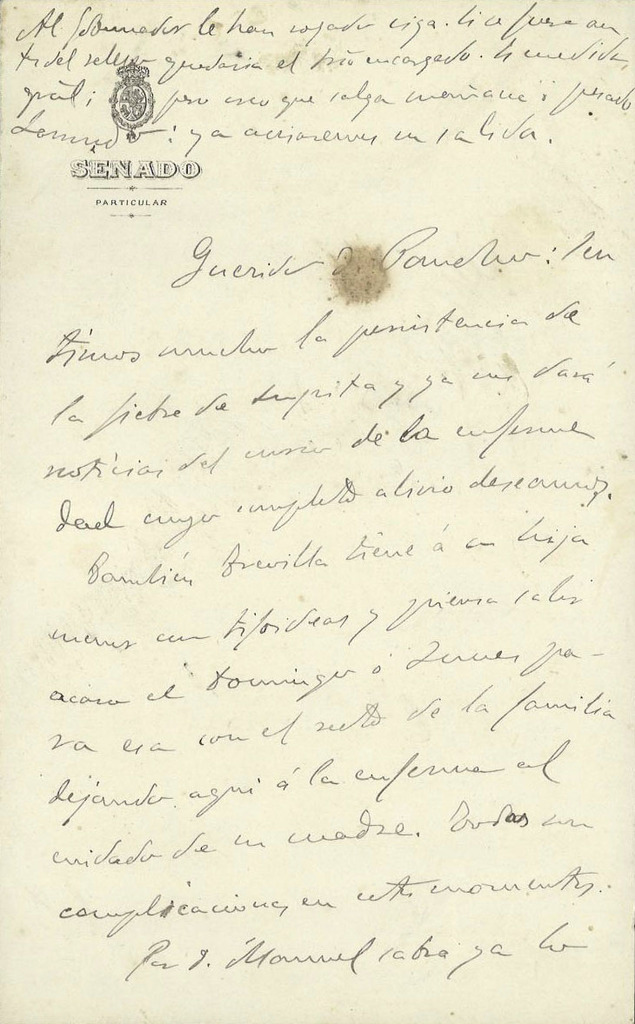 Al Gobernador le han rogado siga. Si se fuera an
tes del relevo quedaria el Srio encargado. Es medida
gral; pero creo que salga mañana ó pasado
ya avisaremos su salida.
SENADO
PARTICULAR
Querido D. Pancho: Sen
timos mucho la persistencia de
la fiebre de y ya me dará
noticias del curso de la enferme
dad cuyo completo alivio deseamos.
También Trevilla tiene á su hija
menor con tifoideas y piensa salir
acaso el Domingo ó Lunes pa-
ra esa con el resto de la familia
dejando aqui á la enferma al
cuidado de su madre. Todas son
complicaciones en estos momentos.
Por D. Manuel sabra ya lo